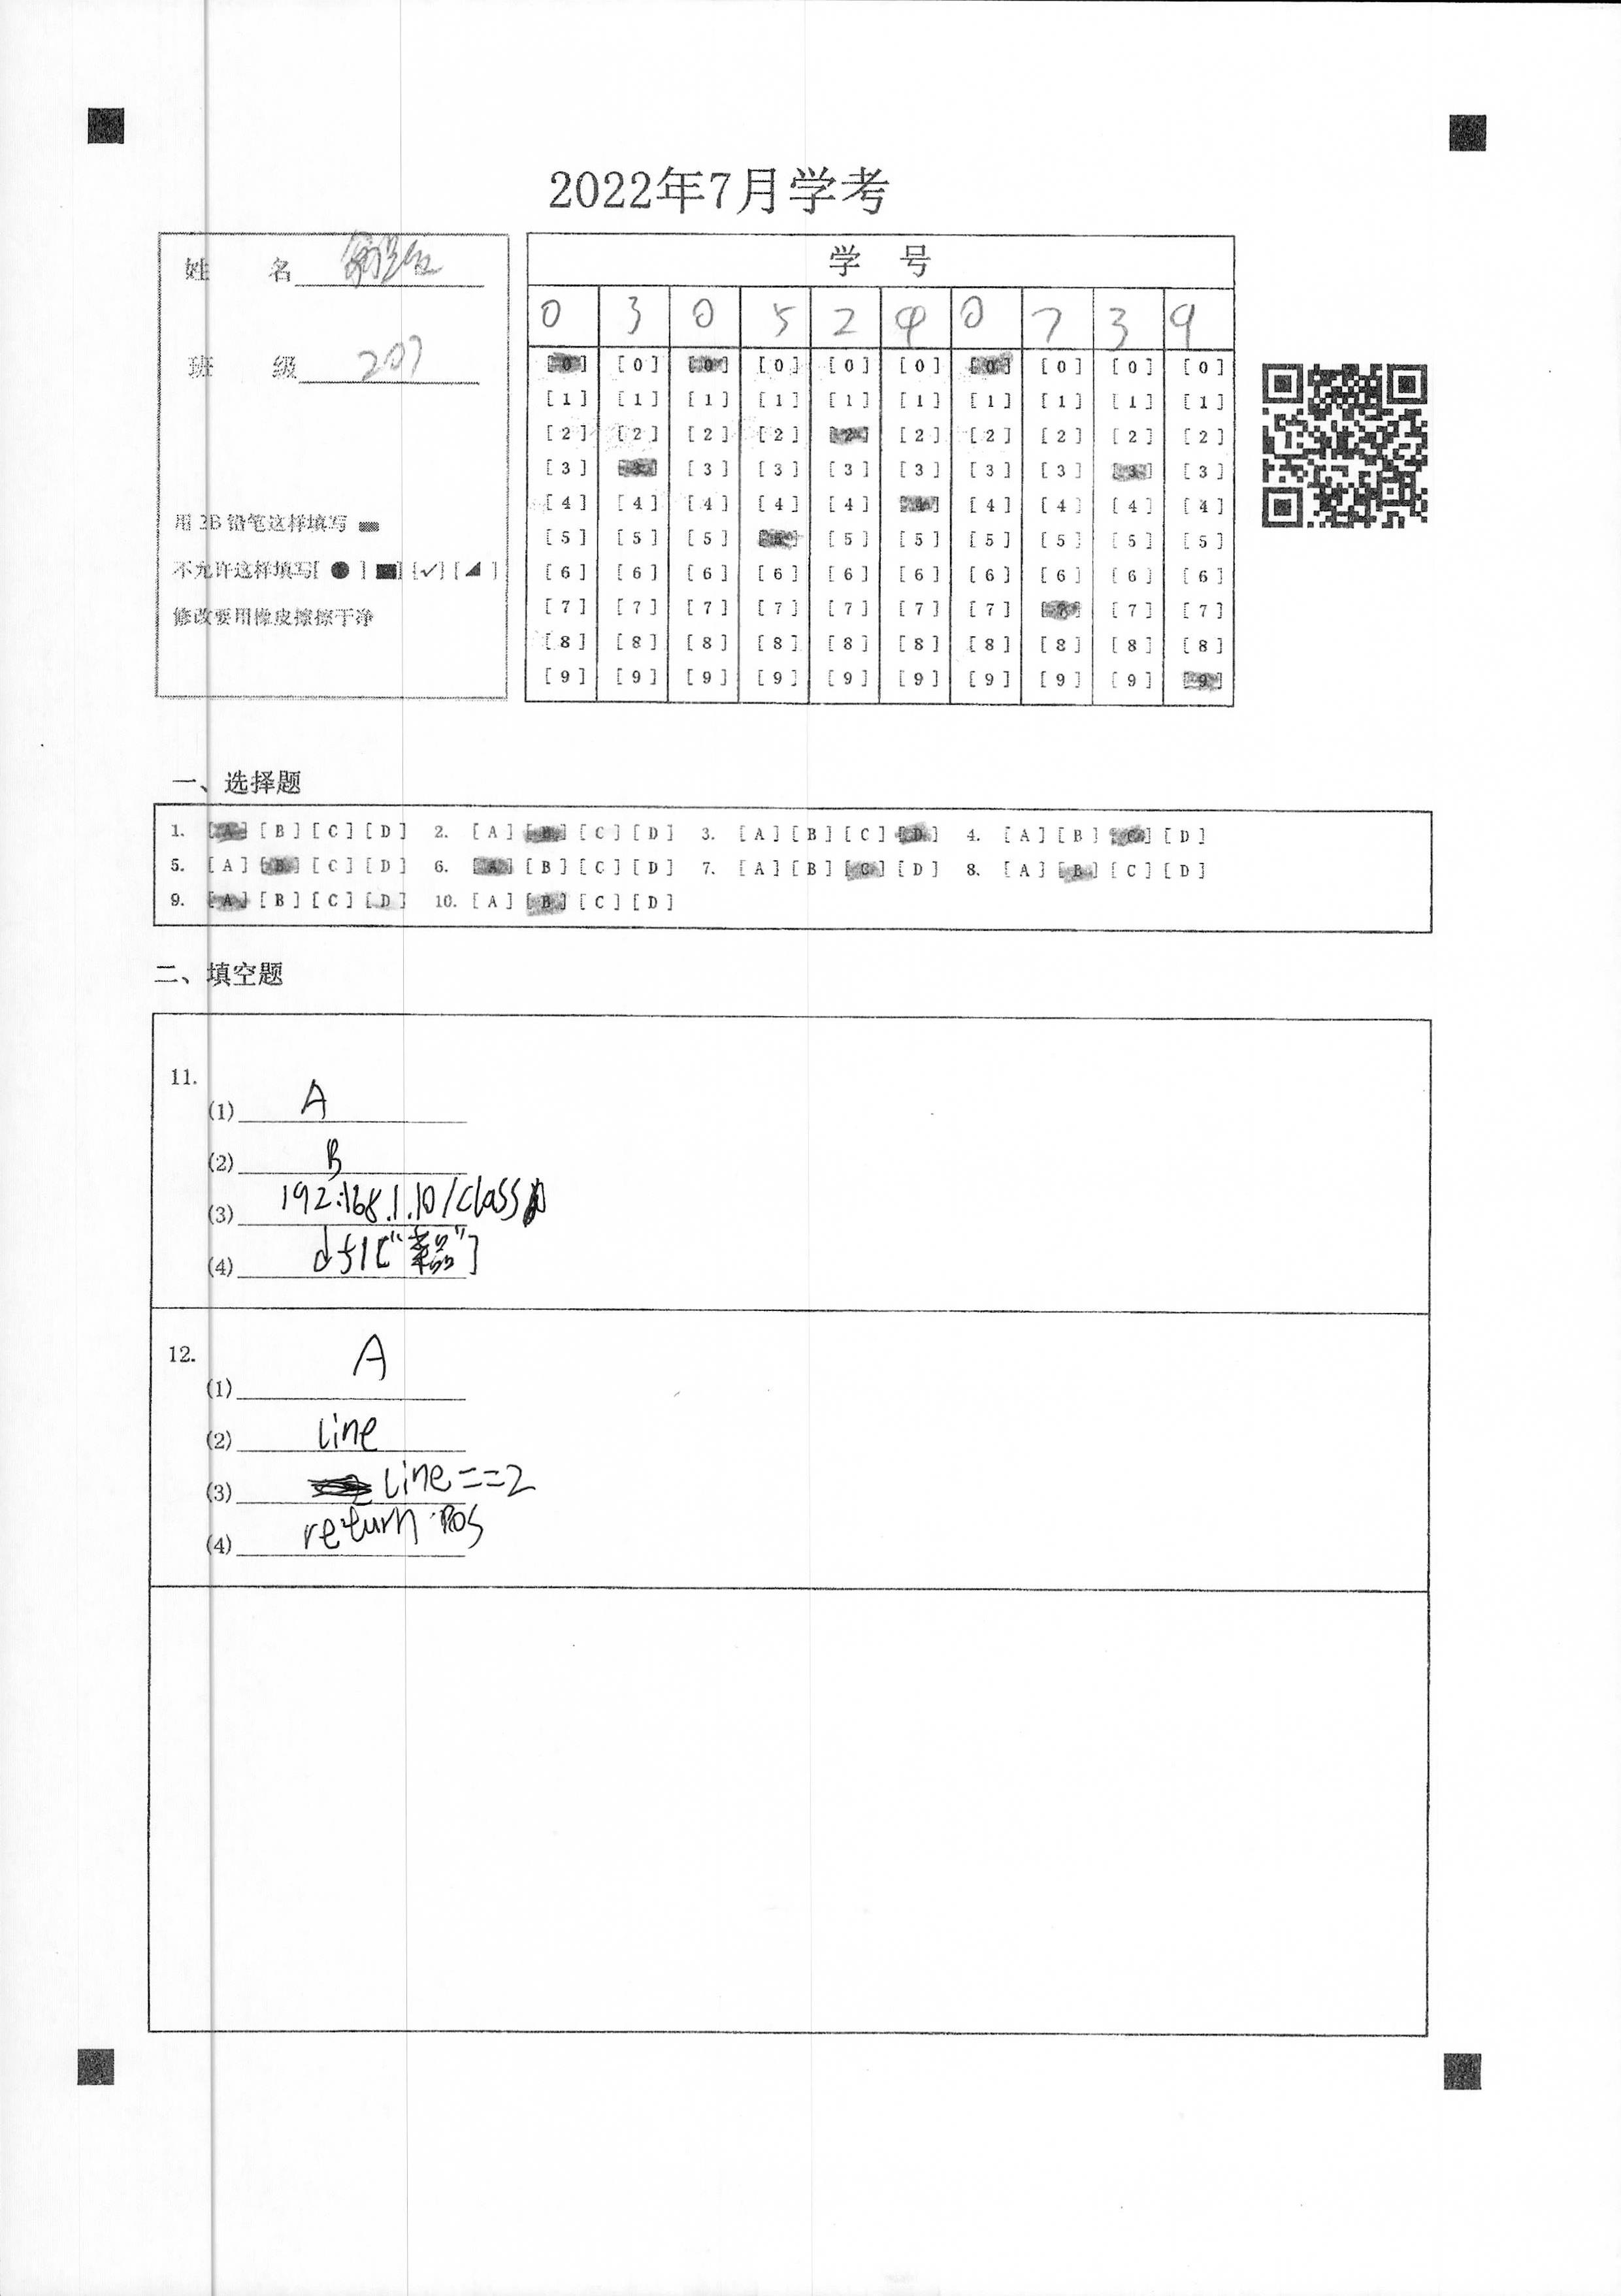 2022年7月学考
姓 名
班 级 207
用 2B 铅笔这样填写
不允许这样填写[ ● ] [■] [✓] [◢ ]
修改要用橡皮擦擦干净
学 号
0 3 0 5 2 4 0 7 3 9
[0] [0] [0] [0] [0] [0] [0] [0] [0] [0]
[1] [1] [1] [1] [1] [1] [1] [1] [1] [1]
[2] [2] [2] [2] [2] [2] [2] [2] [2] [2]
[3] [3] [3] [3] [3] [3] [3] [3] [3] [3]
[4] [4] [4] [4] [4] [4] [4] [4] [4] [4]
[5] [5] [5] [5] [5] [5] [5] [5] [5] [5]
[6] [6] [6] [6] [6] [6] [6] [6] [6] [6]
[7] [7] [7] [7] [7] [7] [7] [7] [7] [7]
[8] [8] [8] [8] [8] [8] [8] [8] [8] [8]
[9] [9] [9] [9] [9] [9] [9] [9] [9] [9]
一、选择题
1. [A] [B] [C] [D] 2. [A] [B] [C] [D] 3. [A] [B] [C] [D] 4. [A] [B] [C] [D]
5. [A] [B] [C] [D] 6. [A] [B] [C] [D] 7. [A] [B] [C] [D] 8. [A] [B] [C] [D]
9. [A] [B] [C] [D] 10. [A] [B] [C] [D]
二、填空题
11.
(1) A
(2) B
(3) 192.168.1.10/class
(4) df1["菜品"]
12.
(1) A
(2) line
(3) line==2
(4) return pos